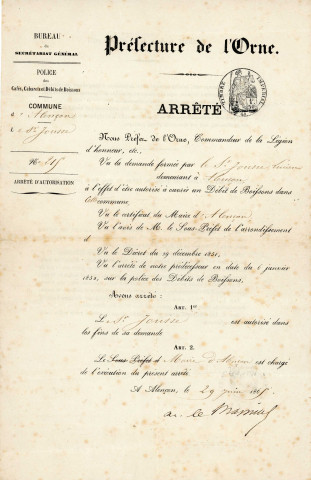 BUREAU
du
SECRÉTARIAT GÉNÉRAL
POLICE
des
Cafés, Cabarets et Débits de Boissons
COMMUNE
d'Alençon
Préfecture de l'Orne.
ARRÊTÉ
N°
ARRÊTÉ D'AUTORISATION
Nous Préfet de l'Orne, Commandeur de la Légion
d'honneur, etc.
Vu la demande formée par le Sr
demeurant à Alençon
à l'effet d'être autorisé à ouvrir un Débit de Boissons dans
cette commune,
Vu le certificat du Maire d'Alençon
Vu l'avis de M. le Sous Préfet de l'arrondissement
d
Vu le Décret du 29 décembre 1851,
Vu l'arrêté de notre prédécesseur en date du 6 janvier
1852, sur la police des Débits de Boissons,
Avons arrêté:
ART. 1er
Le Sr est autorisé dans
les fins de sa demande
ART. 2.
Le Sous Préfet Maire d'Alençon est chargé
de l'exécution du présent arrêté
A Alençon, le 29 juin